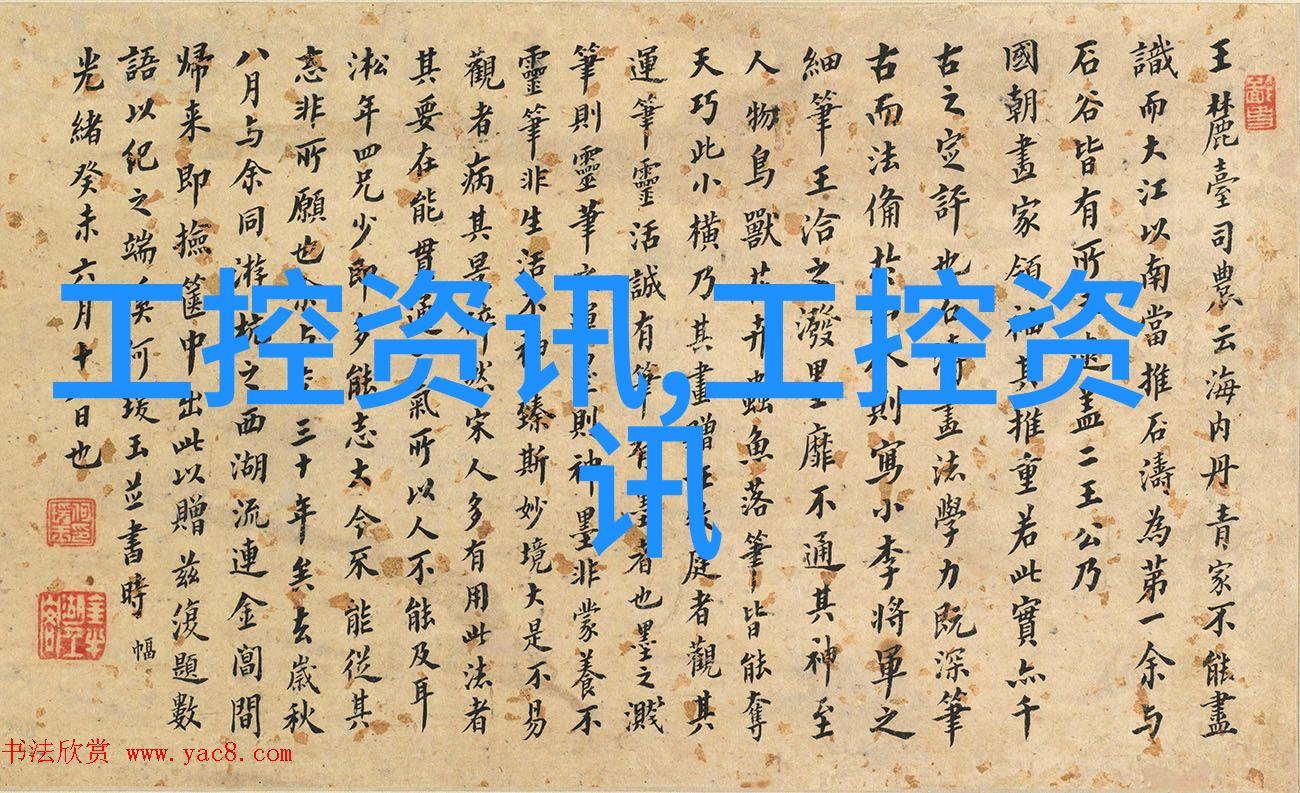 王麓臺司農云海内丹青家不能盡
識而大江以南當推石濤為第一余与
石谷皆有所
盡二王公乃
國朝畫家領袖其推重若此實亦千
古之定評也石濤畫法學力既深筆
古而法備
則寫小李將軍之
細筆王洽之潑墨靡不通其神至
人物鳥獸花卉蟲魚落筆皆能奪
天巧此小橫乃其畫贈
庭者觀其
運筆靈活誠有筆有墨者也墨之濺
筆則靈筆之運墨則神墨非蒙養不
靈筆非生活不神臻斯妙境大是不易
觀者病其
然宋人多有用此法者
其要在能貫通一氣所以人不能及耳
淞年四兄少即多能志大今不能從其
志非所願也余与
三十年矣去歲秋
八月与余同遊坑之西湖流連金閶間
歸来即撿篋中出此以贈茲復題數
語以紀之端矣何瑗玉並書時
光緒癸未六月十
日也
幅
工控资讯,工控资
讯
书法欣赏 www.yac8.com